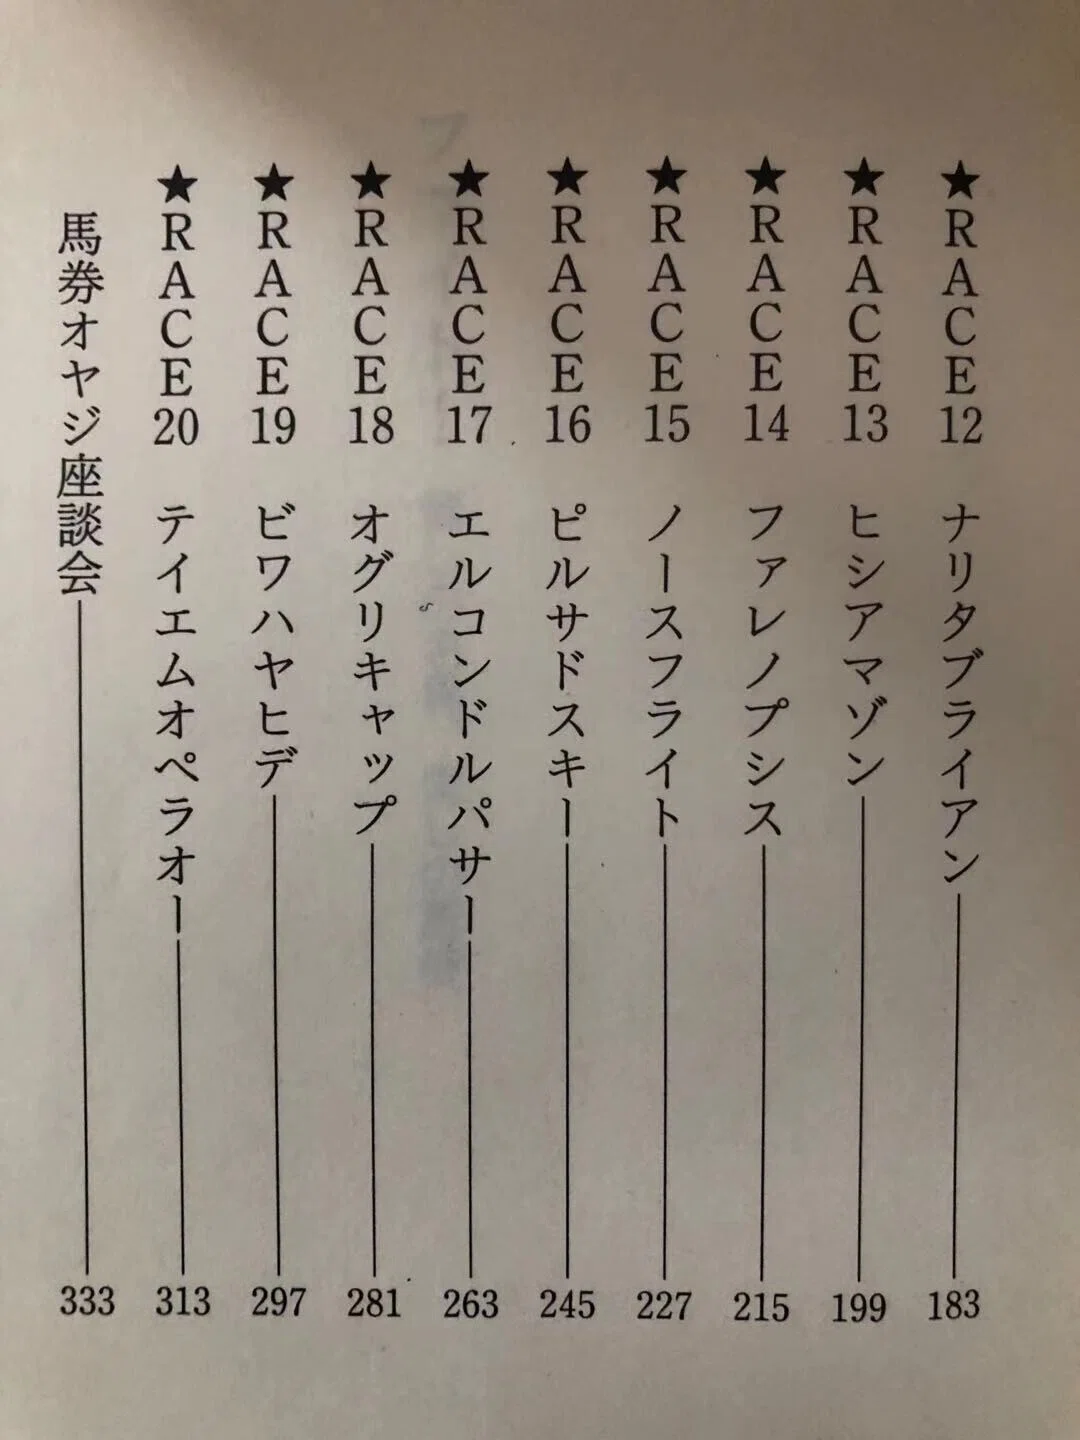 ★RACE12 ナリタブライアン 183
★RACE13 ヒシアマゾン 199
★RACE14 ファレノプシス 215
★RACE15 ノースフライト 227
★RACE16 ピルサドスキー 245
★RACE17 エルコンドルパサー 263
★RACE18 オグリキャップ 281
★RACE19 ビワハヤヒデ 297
★RACE20 テイエムオペラオー 313
馬券オヤジ座談会 333